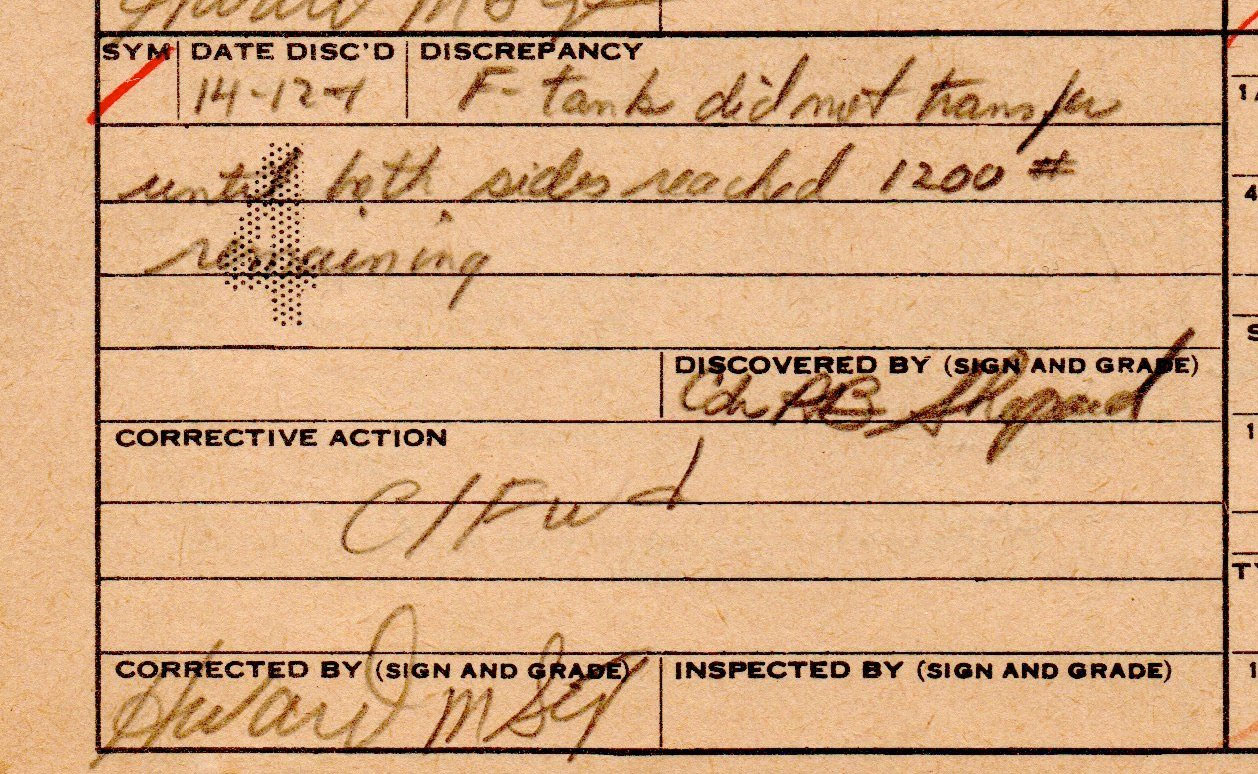 M Sgt
SYM DATE DISC'D DISCREPANCY
14-12-1 F-tank did not transfer
until both sides reached 1200 #
remaining
DISCOVERED BY (SIGN AND GRADE)
Cdr RB Shepard
CORRECTIVE ACTION
C/Fwd
CORRECTED BY (SIGN AND GRADE) INSPECTED BY (SIGN AND GRADE)
M Sgt